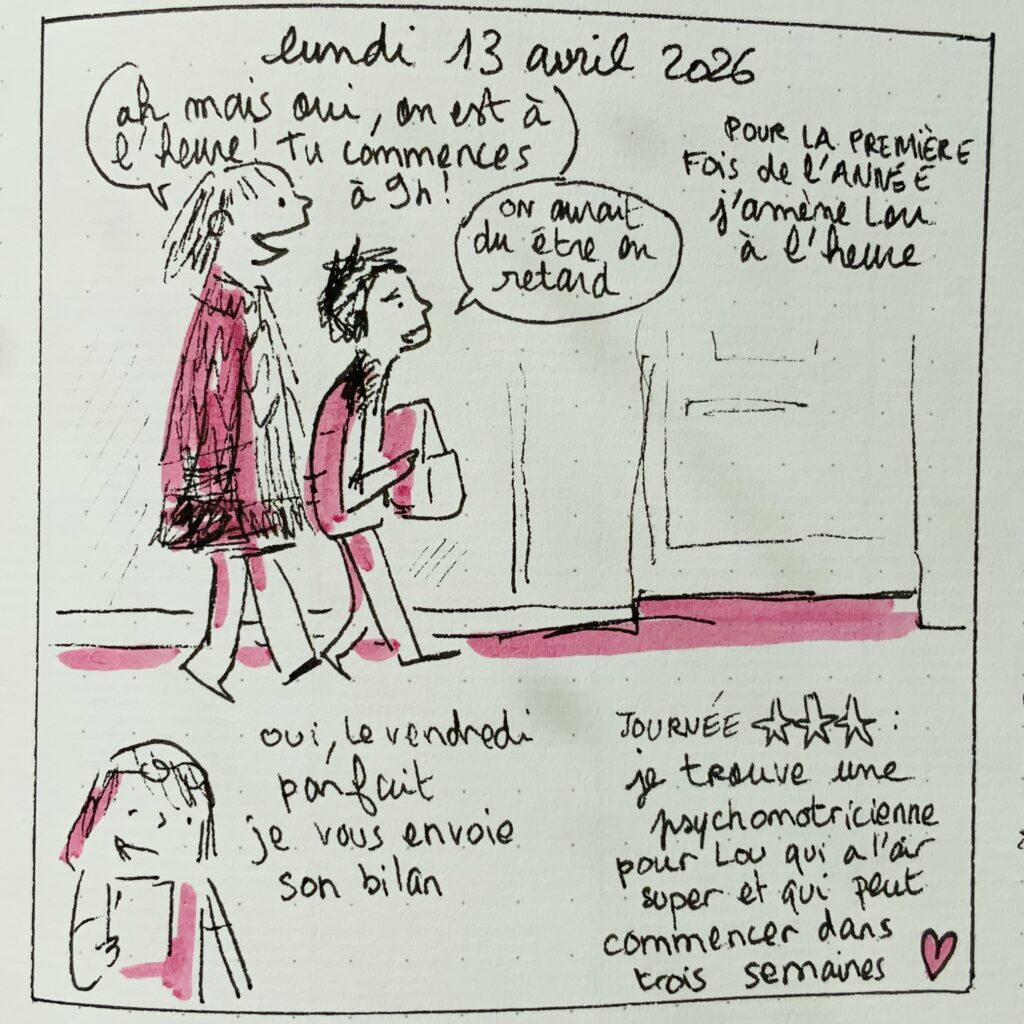 lundi 13 avril 2026
ah mais oui, on est à
l'heure! Tu commences
à 9h!
POUR LA PREMIÈRE
FOIS de L'ANNÉE
j'amène Lou
à l'heure
on aurait
du être en
retard
oui, le vendredi
parfait
je vous envoie
son bilan
JOURNÉE ☆☆☆ :
je trouve une
psychomotricienne
pour Lou qui a l'air
super et qui peut
commencer dans
trois semaines